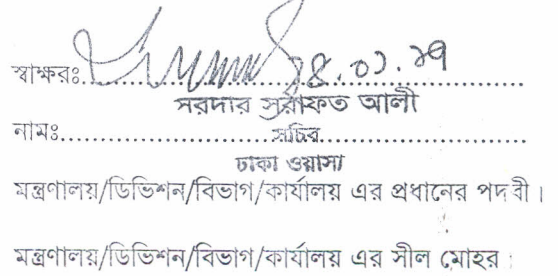 স্বাক্ষরঃ....................৪.০১.১৭
সরদার সুরাফত আলী
নামঃ....................সচিব....................
ঢাকা ওয়াসা
মন্ত্রণালয়/ডিভিশন/বিভাগ/কার্যালয় এর প্রধানের পদবী।
মন্ত্রণালয়/ডিভিশন/বিভাগ/কার্যালয় এর সীল মোহর